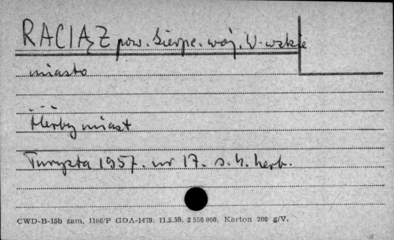 RACIĄŻ pow. Sierpc. woj. W-wskie
miasto
- - -
Herby miast
Turysta 1957. nr 17. s. h. herb.
CWD-B-15b zam. 1106/P GDA-1479. 11.3.59. 2 550 000. Karton 200 g/V.